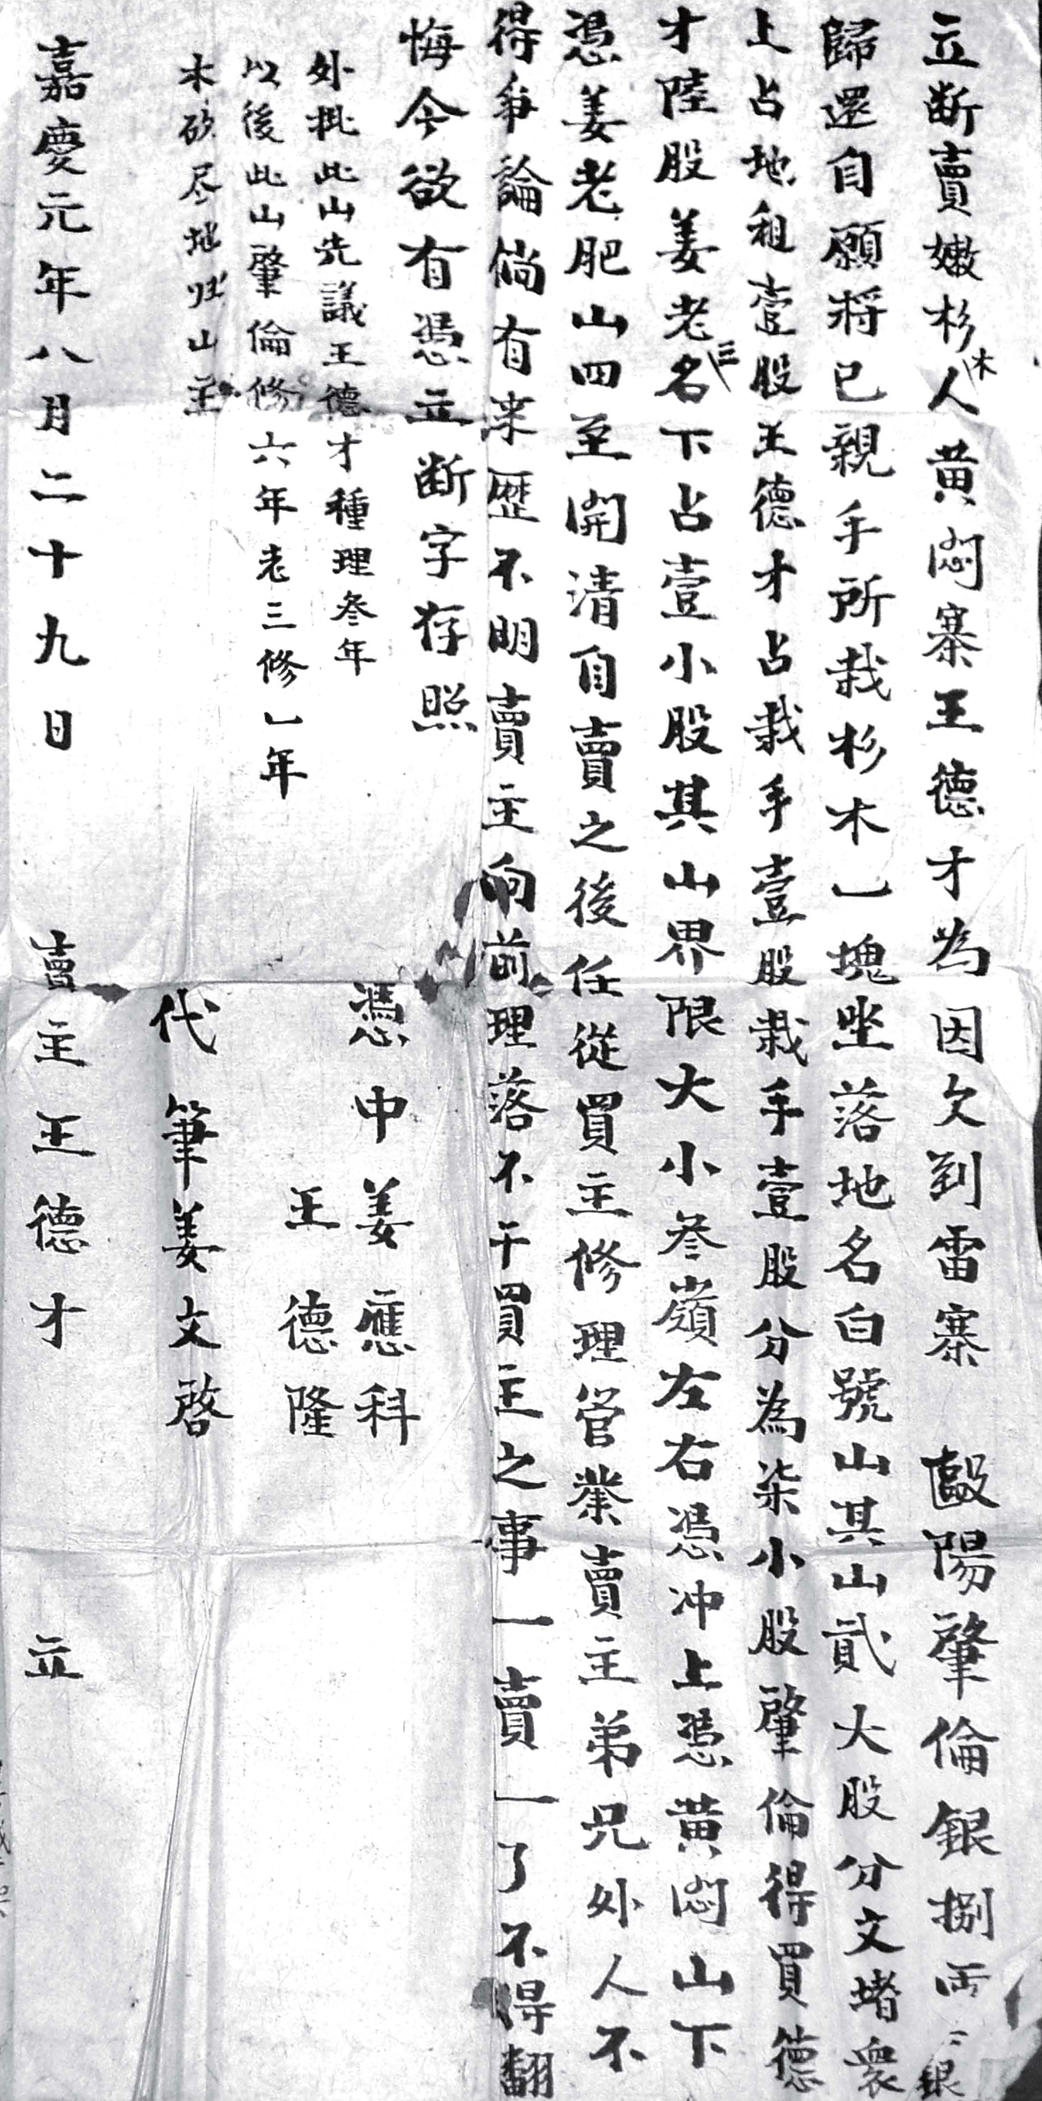 立断賣嫩杉木人黃悶寨王德才為因欠到雷寨 歐陽肇倫銀捌両 銀
歸還自願將己親手所栽杉木一塊坐落地名白號山其山貳大股分文堵衆
上占地租壹股王德才占栽手壹股栽手壹股分為柒小股肇倫得買德
才陸股姜老三名下占壹小股其山界限大小叁嶺左右憑冲上憑黃悶山下
憑姜老肥山四至開清自賣之後任從買主修理管業賣主弟兄外人不
得爭論倘有来歷不明賣主向前理落不干買主之事一賣一了不得翻
悔今欲有憑立断字存照
外批此山先議王德才種理叁年
以後此山肇倫修六年老三修乚年
木砍尽地归山主
憑中姜應科
王德隆
代筆姜文啓
嘉慶元年八月二十九日 賣主王德才 立